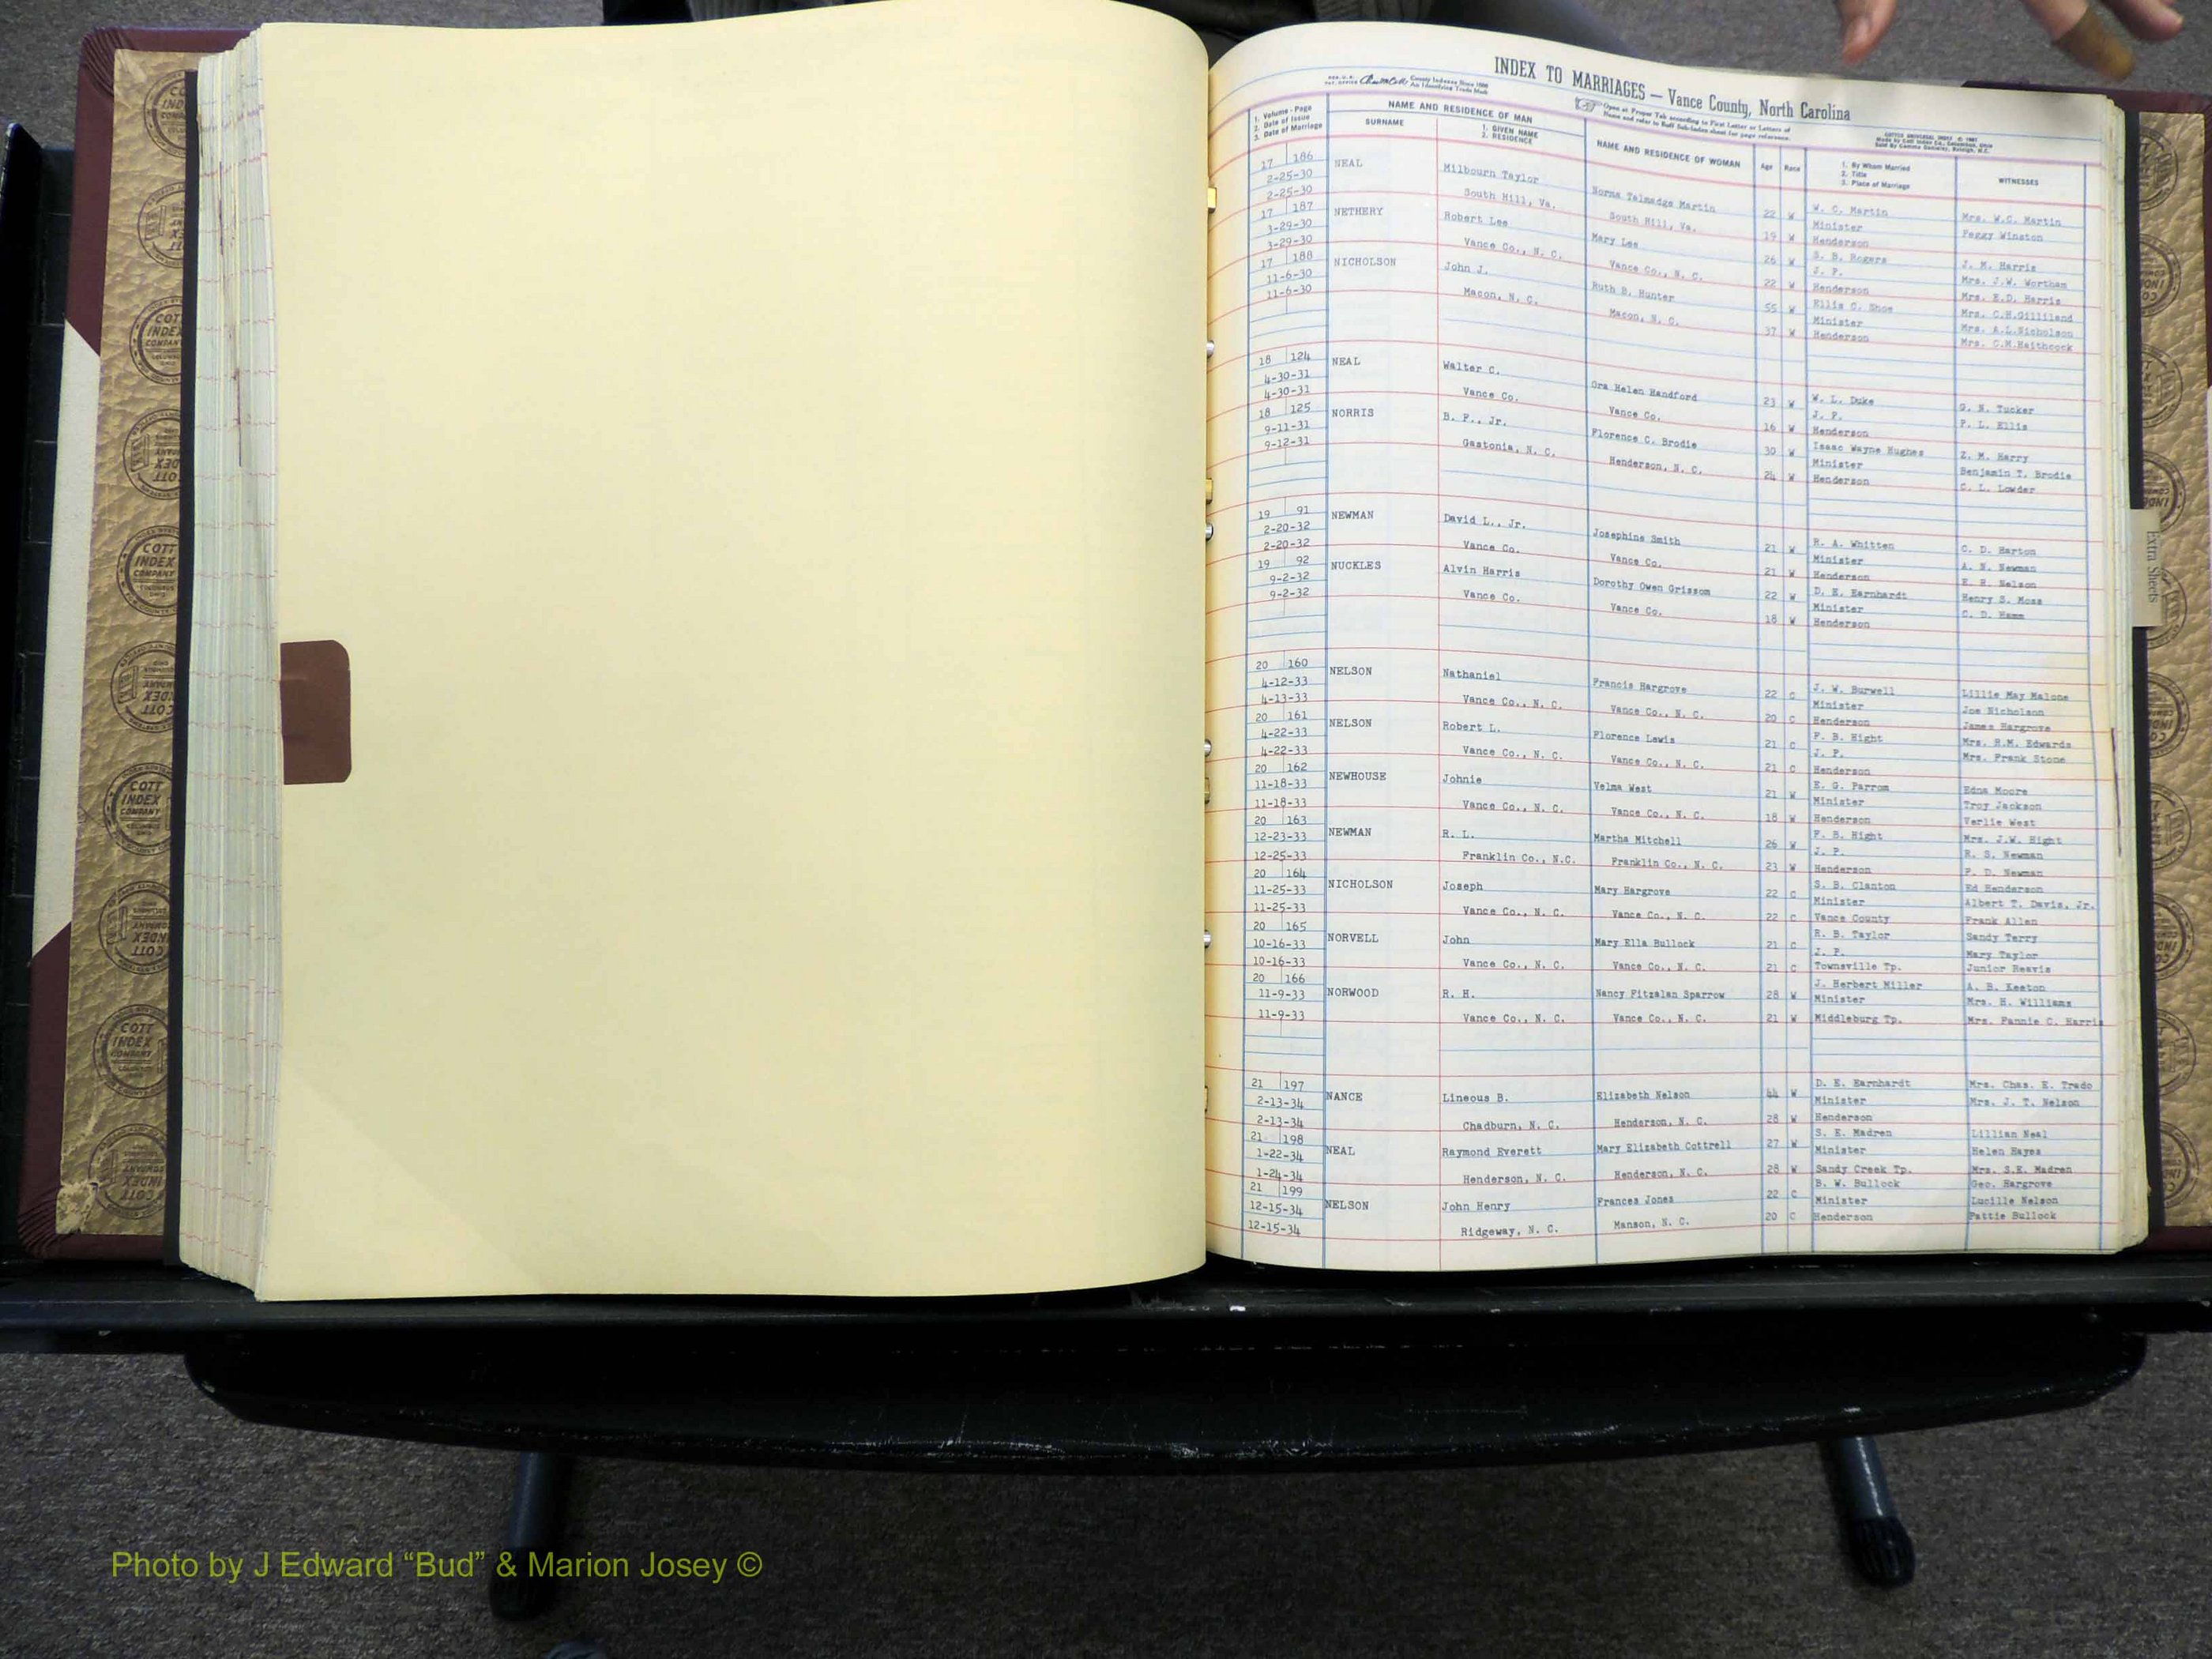 INDEX TO MARRIAGES — Vance County, North Carolina
County Indexes Since 1888
An Identifying Trade Mark
Open at Proper Tab according to First Letter or Letters of
Name and refer to Buff Sub-Index sheet for page reference.
1. Volume - Page
2. Date of Issue
3. Date of Marriage
NAME AND RESIDENCE OF MAN
SURNAME
1. GIVEN NAME
2. RESIDENCE
NAME AND RESIDENCE OF WOMAN
Age Race
1. By Whom Married
2. Title
3. Place of Marriage
WITNESSES
17 186 NEAL Milbourn Taylor Norma Talmadge Martin 22 W W. C. Martin Mrs. W.C. Martin
2-25-30 South Hill, Va. South Hill, Va. 19 W Minister Peggy Winston
2-25-30 Henderson
17 187 NETHERY Robert Lee Mary Lee 26 W S. B. Rogers J. M. Harris
3-29-30 Vance Co., N. C. Vance Co., N. C. 22 W J. P. Mrs. J.W. Wortham
3-29-30 Henderson Mrs. E.D. Harris
17 188 NICHOLSON John J. Ruth B. Hunter 55 W Ellis C. Shoe Mrs. C.H.Gilliland
11-6-30 Macon, N. C. Macon, N. C. 37 W Minister Mrs. A.L.Nicholson
11-6-30 Henderson Mrs. C.M.Haithcock
18 124 NEAL Walter C. Ora Helen Handford 23 W W. L. Duke G. N. Tucker
4-30-31 Vance Co. Vance Co. 16 W J. P. P. L. Ellis
4-30-31 Henderson
18 125 NORRIS B. F., Jr. Florence C. Brodie 30 W Isaac Wayne Hughes Z. M. Harry
9-11-31 Gastonia, N. C. Henderson, N. C. 24 W Minister Benjamin T. Brodie
9-12-31 Henderson C. L. Lowder
19 91 NEWMAN David L., Jr. Josephine Smith 21 W R. A. Whitten C. D. Harton
2-20-32 Vance Co. Vance Co. 21 W Minister A. N. Newman
2-20-32 Henderson E. H. Nelson
19 92 NUCKLES Alvin Harris Dorothy Owen Grissom 22 W D. E. Earnhardt Henry S. Moss
9-2-32 Vance Co. Vance Co. 18 W Minister C. D. Hamm
9-2-32 Henderson
20 160 NELSON Nathaniel Francis Hargrove 22 C J. W. Burwell Lillie May Malone
4-12-33 Vance Co., N. C. Vance Co., N. C. 20 C Minister Joe Nicholson
4-13-33 Henderson James Hargrove
20 161 NELSON Robert L. Florence Lewis 21 C F. B. Hight Mrs. H.M. Edwards
4-22-33 Vance Co., N. C. Vance Co., N. C. 21 C J. P. Mrs. Frank Stone
4-22-33 Henderson
20 162 NEWHOUSE Johnie Velma West 21 W E. G. Parrom Edna Moore
11-18-33 Vance Co., N. C. Vance Co., N. C. 18 W Minister Troy Jackson
11-18-33 Henderson Verlie West
20 163 NEWMAN R. L. Martha Mitchell 26 W F. B. Hight Mrs. J.W. Hight
12-23-33 Franklin Co., N.C. Franklin Co., N. C. 23 W J. P. R. S. Newman
12-25-33 Henderson P. D. Newman
20 164 NICHOLSON Joseph Mary Hargrove 22 C S. B. Clanton Ed Henderson
11-25-33 Vance Co., N. C. Vance Co., N. C. 22 C Minister Albert T. Davis, Jr.
11-25-33 Vance County Frank Allen
20 165 NORVELL John Mary Ella Bullock 21 C R. B. Taylor Sandy Terry
10-16-33 Vance Co., N. C. Vance Co., N. C. 21 C J. P. Mary Taylor
10-16-33 Townsville Tp. Junior Reavis
20 166 NORWOOD R. H. Nancy Fitzalan Sparrow 28 W J. Herbert Miller A. B. Keeton
11-9-33 Vance Co., N. C. Vance Co., N. C. 21 W Minister Mrs. H. Williams
11-9-33 Middleburg Tp. Mrs. Fannie C. Harris
21 197 NANCE Lineous B. Elizabeth Nelson 44 W D. E. Earnhardt Mrs. Chas. E. Trado
2-13-34 Chadburn, N. C. Henderson, N. C. 28 W Minister Mrs. J. T. Nelson
2-13-34 Henderson
21 198 NEAL Raymond Everett Mary Elizabeth Cottrell 27 W S. E. Madren Lillian Neal
1-22-34 Henderson, N. C. Henderson, N. C. 28 W Minister Helen Hayes
1-24-34 Sandy Creek Tp. Mrs. S.E. Madren
21 199 NELSON John Henry Frances Jones 22 C B. W. Bullock Geo. Hargrove
12-15-34 Ridgeway, N. C. Manson, N. C. 20 C Minister Lucille Nelson
12-15-34 Henderson Pattie Bullock
Extra Sheets
COTT
INDEX
COMPANY
Photo by J Edward “Bud” & Marion Josey ©